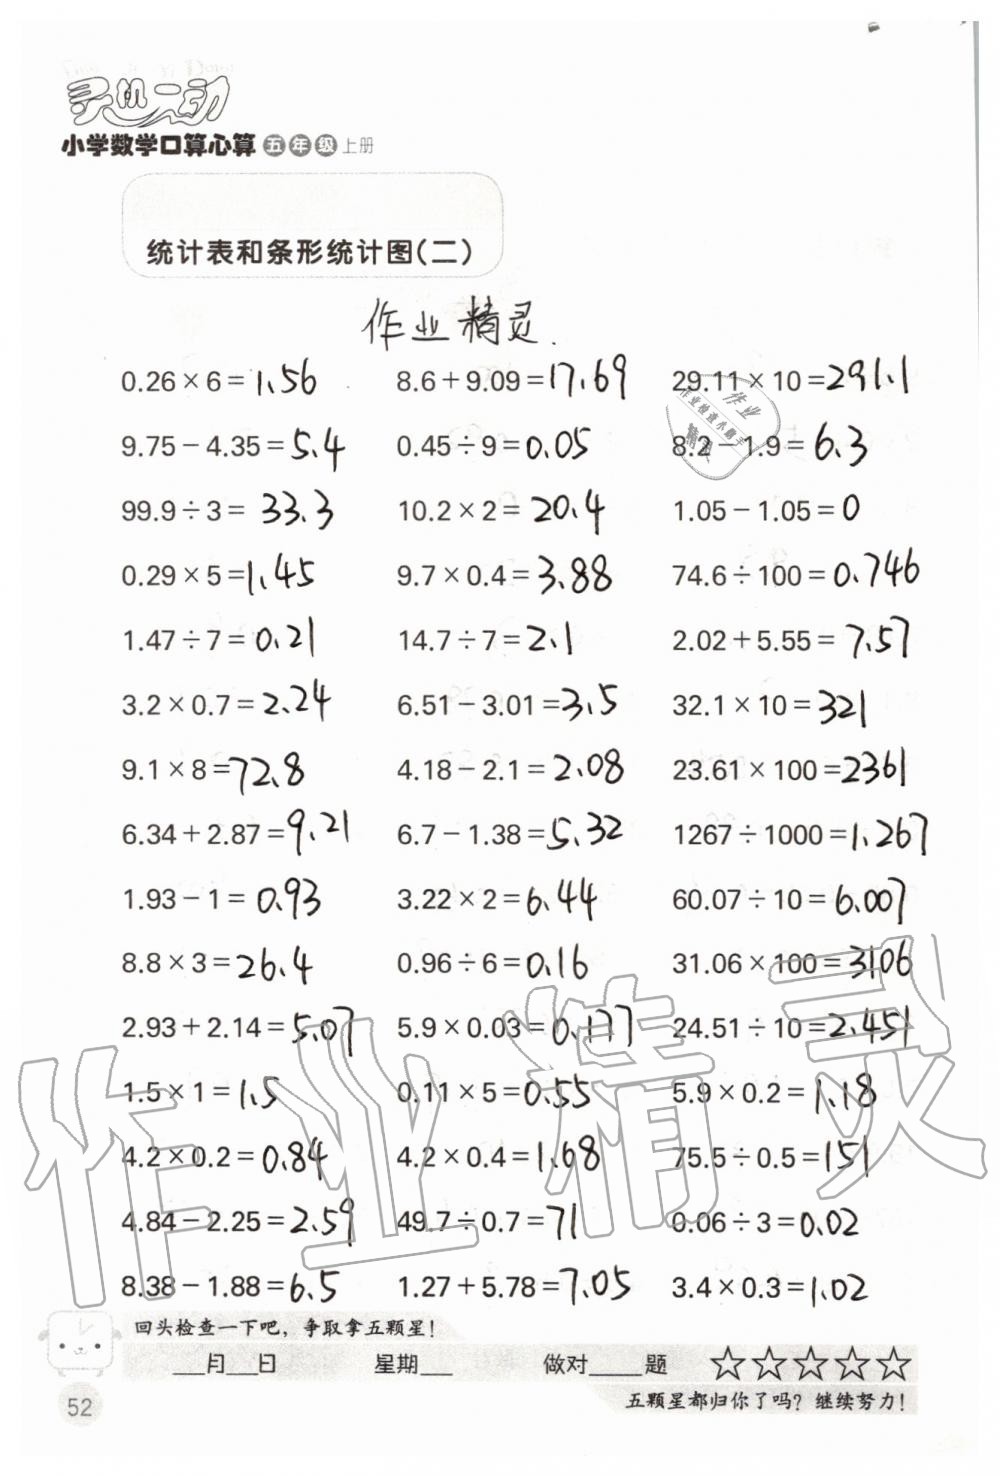 灵机一动
小学数学口算心算 五年级 上册
统计表和条形统计图(二)
作业精灵.
0.26×6=1.56 8.6+9.09=17.69 29.11×10=291.1
9.75-4.35=5.4 0.45÷9=0.05 8.2-1.9=6.3
99.9÷3=33.3 10.2×2=20.4 1.05-1.05=0
0.29×5=1.45 9.7×0.4=3.88 74.6÷100=0.746
1.47÷7=0.21 14.7÷7=2.1 2.02+5.55=7.57
3.2×0.7=2.24 6.51-3.01=3.5 32.1×10=321
9.1×8=72.8 4.18-2.1=2.08 23.61×100=2361
6.34+2.87=9.21 6.7-1.38=5.32 1267÷1000=1.267
1.93-1=0.93 3.22×2=6.44 60.07÷10=6.007
8.8×3=26.4 0.96÷6=0.16 31.06×100=3106
2.93+2.14=5.07 5.9×0.03=0.177 24.51÷10=2.451
1.5×1=1.5 0.11×5=0.55 5.9×0.2=1.18
4.2×0.2=0.84 4.2×0.4=1.68 75.5÷0.5=151
4.84-2.25=2.59 49.7÷0.7=71 0.06÷3=0.02
8.38-1.88=6.5 1.27+5.78=7.05 3.4×0.3=1.02
作业精灵
作业
作业检查小助手
精灵
回头检查一下吧，争取拿五颗星！
__月__日 星期__ 做对____题 ☆☆☆☆☆
五颗星都归你了吗？继续努力！
52